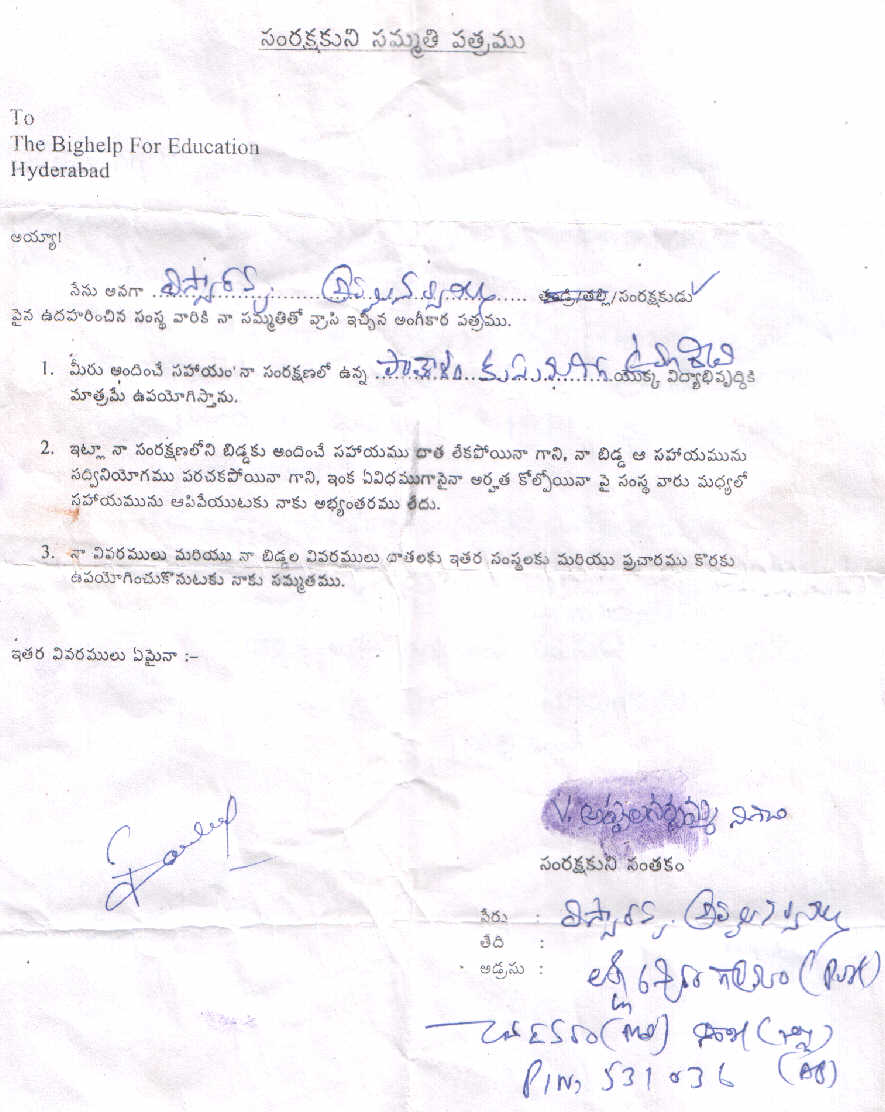 సంరక్షకుని సమ్మతి పత్రము
To
The Bighelp For Education
Hyderabad
అయ్యా!
నేను అనగా ........................ తండ్రి/తల్లి/సంరక్షకుడు ✓
పైన ఉదహరించిన సంస్థ వారికి నా సమ్మతితో వ్రాసి ఇచ్చిన అంగీకార పత్రము.
1. మీరు అందించే సహాయం నా సంరక్షణలో ఉన్న ........................ యొక్క విద్యాభివృద్ధికి
మాత్రమే ఉపయోగిస్తాను.
2. ఇట్లా నా సంరక్షణలోని బిడ్డకు అందించే సహాయము దాత లేకపోయినా గాని, నా బిడ్డ ఆ సహాయమును
సద్వినియోగము పరచకపోయినా గాని, ఇంక ఏవిధముగానైనా అర్హత కోల్పోయినా పై సంస్థ వారు మధ్యలో
సహాయమును ఆపివేయుటకు నాకు అభ్యంతరము లేదు.
3. నా వివరములు మరియు నా బిడ్డల వివరములు దాతలకు ఇతర సంస్థలకు మరియు ప్రచారము కొరకు
ఉపయోగించుకొనుటకు నాకు సమ్మతము.
ఇతర వివరములు ఏమైనా :–
V. అప్పలనర్సమ్మ నిశాని
సంరక్షకుని సంతకం
పేరు :
తేది :
అడ్రసు :
PIN, 531036 (AP)